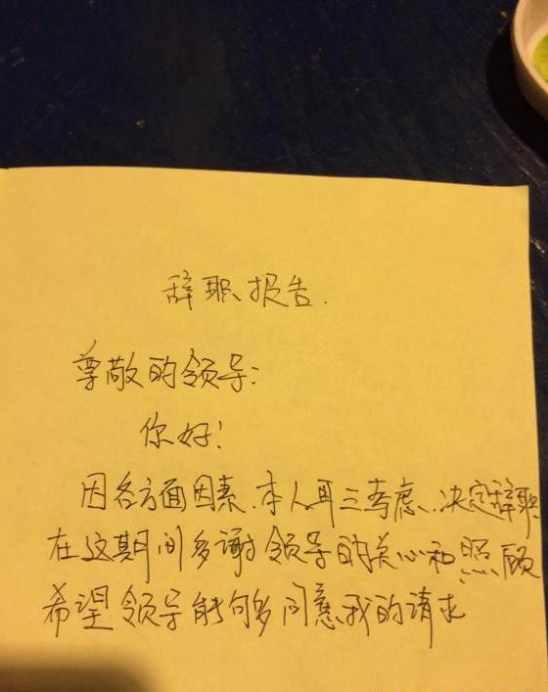 辞职报告.
尊敬的领导:
你好!
因各方面因素.本人再三考虑.决定辞职
在这期间多谢领导的关心和照顾
希望领导能够同意我的请求